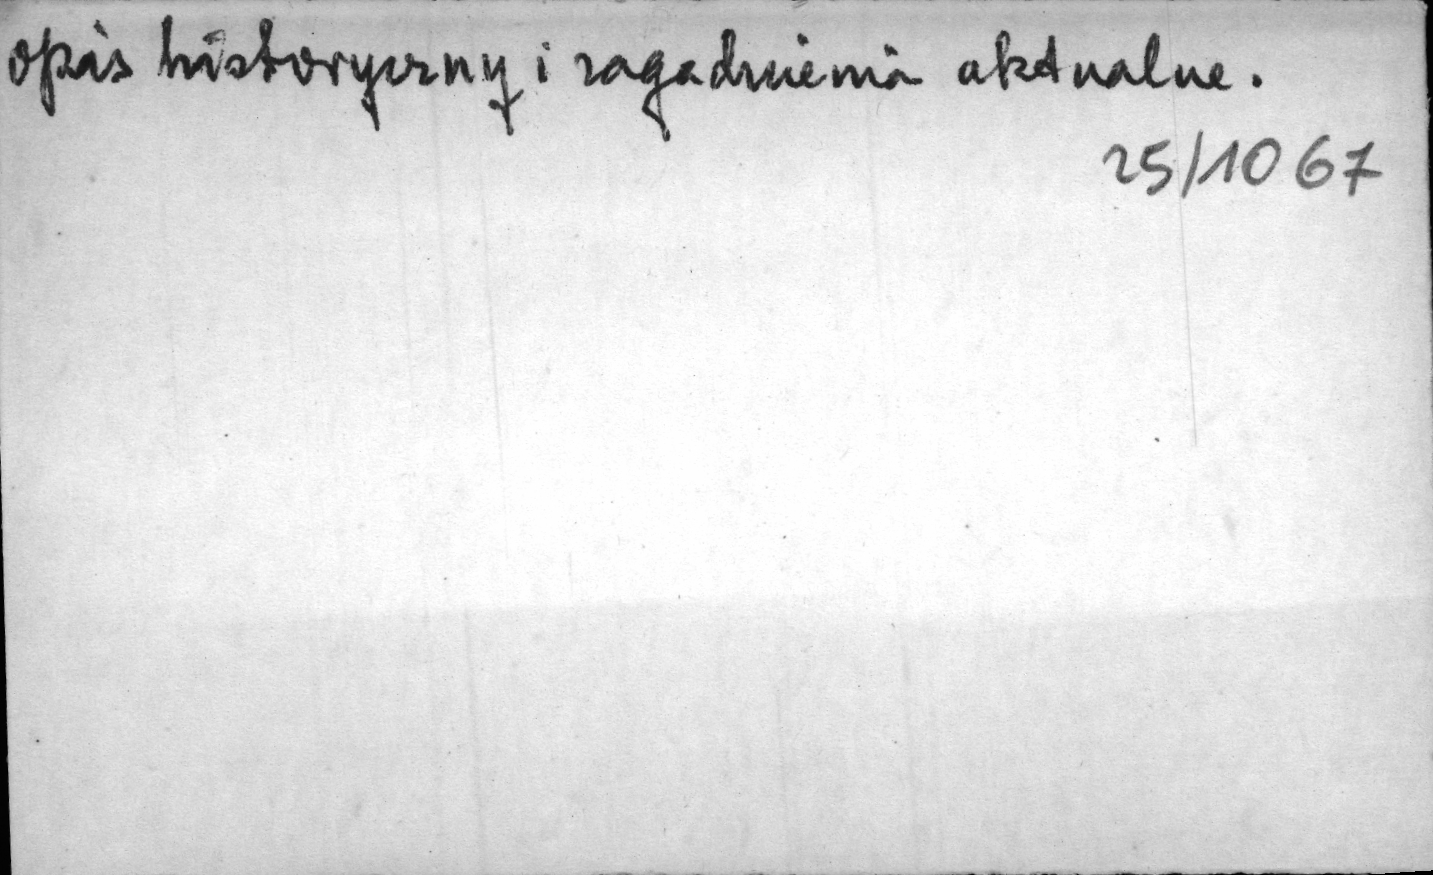 opis historyczny i zagadnienia aktualne.
25/10 67